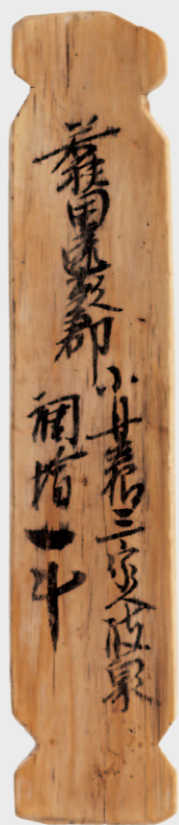 若狭国遠敷郡
小丹生郷三家人波泉
調塩一斗